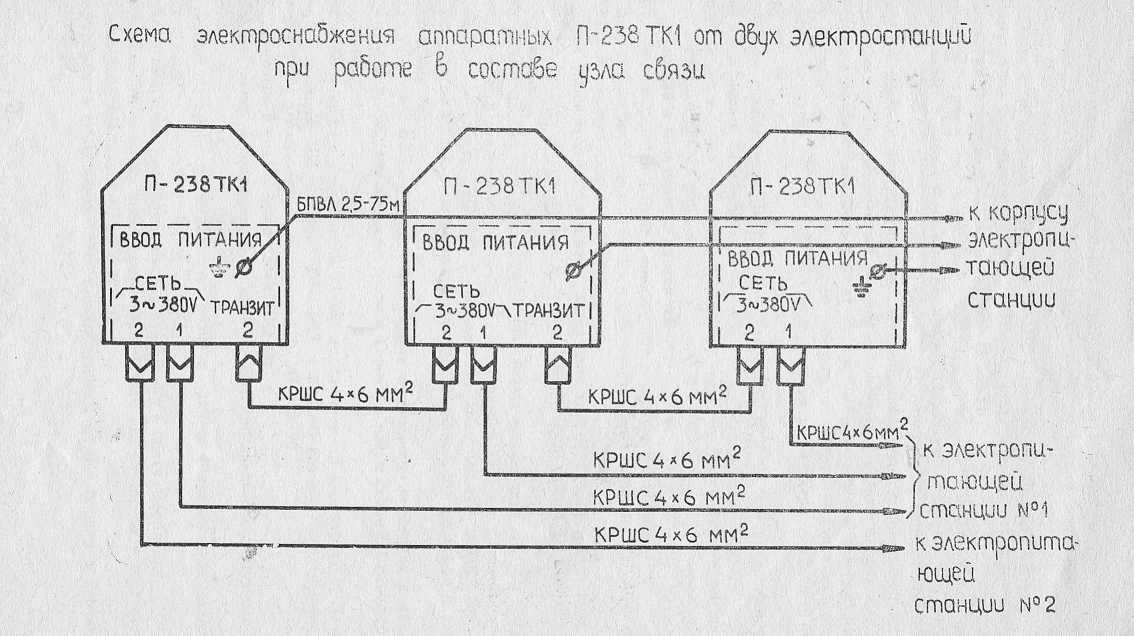 Схема электроснабжения аппаратных П-238 ТК1 от двух электростанций
при работе в составе узла связи
П-238 ТК1
БПВЛ 2,5-75м
ВВОД ПИТАНИЯ
СЕТЬ
3~380V
ТРАНЗИТ
2 1 2
П-238 ТК1
ВВОД ПИТАНИЯ
СЕТЬ
3~380V
ТРАНЗИТ
2 1 2
П-238 ТК1
ВВОД ПИТАНИЯ
СЕТЬ
3~380V
2 1
к корпусу
электропи-
тающей
станции
КРШС 4×6 ММ²
КРШС 4×6 ММ²
КРШС 4×6 ММ²
КРШС 4×6 ММ²
КРШС 4×6 ММ²
КРШС 4×6 ММ²
к электропи-
тающей
станции №1
к электропита-
ющей
станции №2